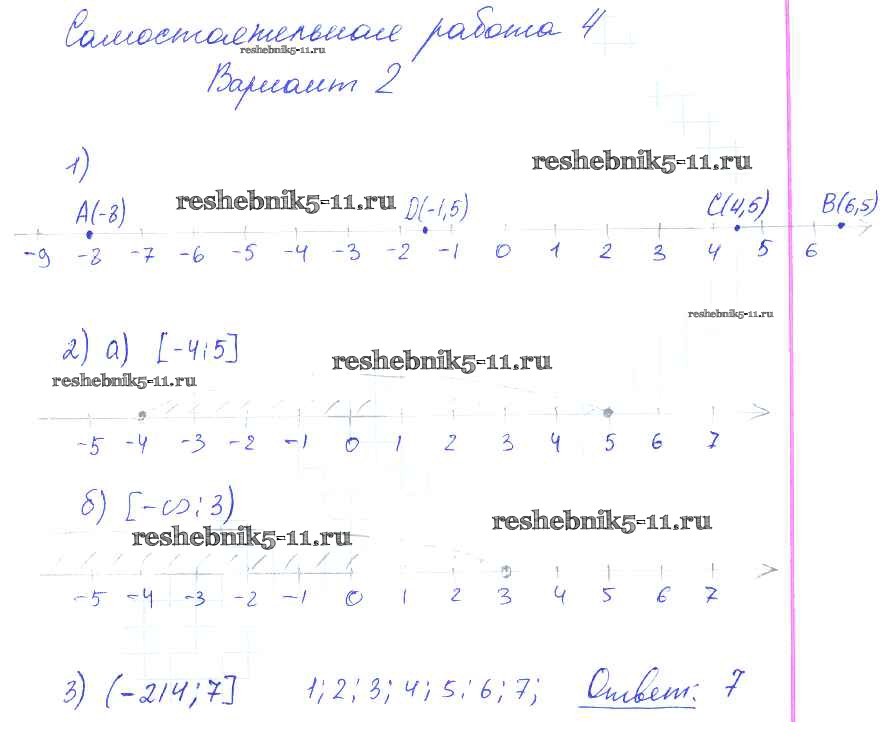 Самостоятельная работа 4
reshebnik5-11.ru
Вариант 2
1)
reshebnik5-11.ru
reshebnik5-11.ru
A(-8) D(-1,5) C(4,5) B(6,5)
-9 -8 -7 -6 -5 -4 -3 -2 -1 0 1 2 3 4 5 6
reshebnik5-11.ru
2) а) [-4;5]
reshebnik5-11.ru
reshebnik5-11.ru
-5 -4 -3 -2 -1 0 1 2 3 4 5 6 7
б) [-∞;3)
reshebnik5-11.ru
reshebnik5-11.ru
-5 -4 -3 -2 -1 0 1 2 3 4 5 6 7
3) (-2,4;7] 1; 2; 3; 4; 5; 6; 7; Ответ: 7